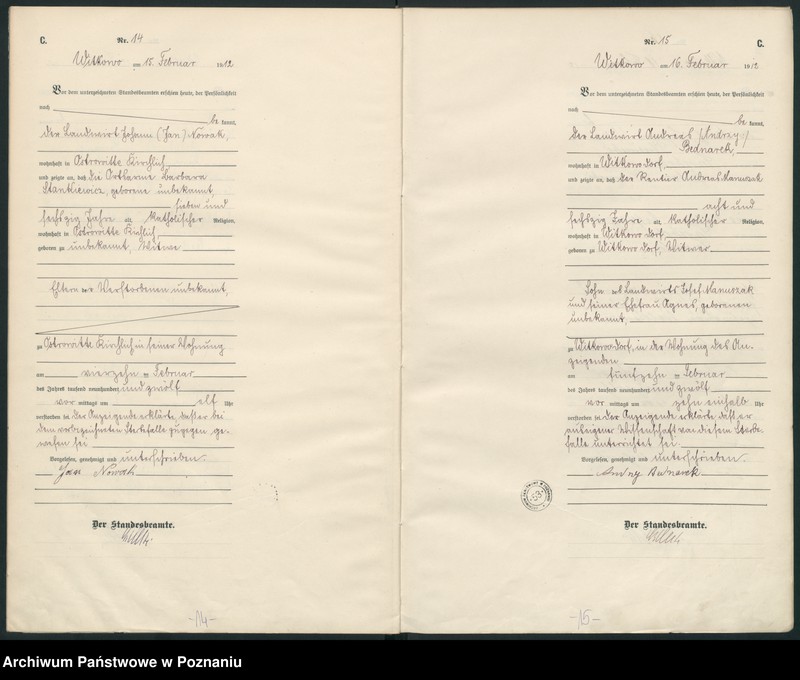 C.
Nr. 14
Witkowo am 15. Februar 1912
Vor dem unterzeichneten Standesbeamten erschien heute, der Persönlichkeit
nach
be kannt,
der Landwirt Johann (Jan) Nowak,
wohnhaft in Ostrowitte Kirchlich,
und zeigte an, daß die Ortsarme Barbara
Stankiewicz, geborene unbekannt,
sieben und
sechszig Jahre alt, katholischer Religion,
wohnhaft in Ostrowitte Kirchlich
geboren zu unbekannt, Witwe
Eltern der Verstorbenen unbekannt,
zu Ostrowitte Kirchlich in seiner Wohnung
am vierzehn ten Februar
des Jahres tausend neunhundert und zwölf
vor mittags um elf Uhr
verstorben sei. Der Anzeigende erklärte, daß er bei
dem vorbezeichneten Sterbefalle zugegen ge-
wesen sei.
Vorgelesen, genehmigt und unterschrieben.
Jan Nowak
Der Standesbeamte.
-14-
Nr. 15
C.
Witkowo am 16. Februar 1912
Vor dem unterzeichneten Standesbeamten erschien heute, der Persönlichkeit
nach
be kannt,
der Landwirt Andreas /Andrzej/
Bednarek,
wohnhaft in Witkowo Dorf,
und zeigte an, daß der Rentier Andreas Manuszak
acht und
sechszig Jahre alt, katholischer Religion,
wohnhaft in Witkowo Dorf,
geboren zu Witkowo Dorf, Witwer
Sohn des Landwirts Josef Manuszak
und seiner Ehefrau Agnes, geborenen
unbekannt,
zu Witkowo Dorf, in der Wohnung des An-
zeigenden
am fünfzehn ten Februar
des Jahres tausend neunhundert und zwölf
vor mittags um zehn einhalb Uhr
verstorben sei. Der Anzeigende erklärte, daß er
aus eigener Wissenschaft von diesem Sterbe-
falle unterrichtet sei.
Vorgelesen, genehmigt und unterschrieben.
Andrzej Bednarek
Der Standesbeamte.
-15-
Archiwum Państwowe w Poznaniu